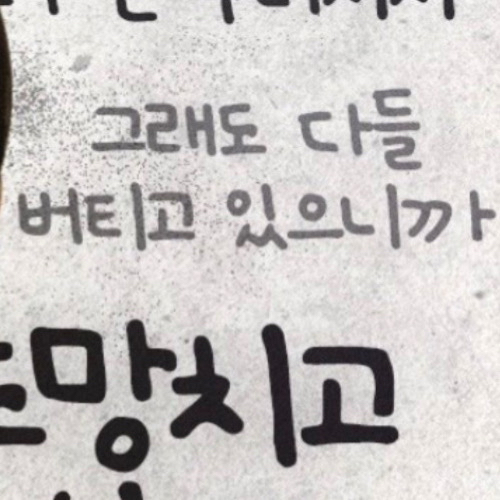 그래도 다들
버티고 있으니까
도망치고